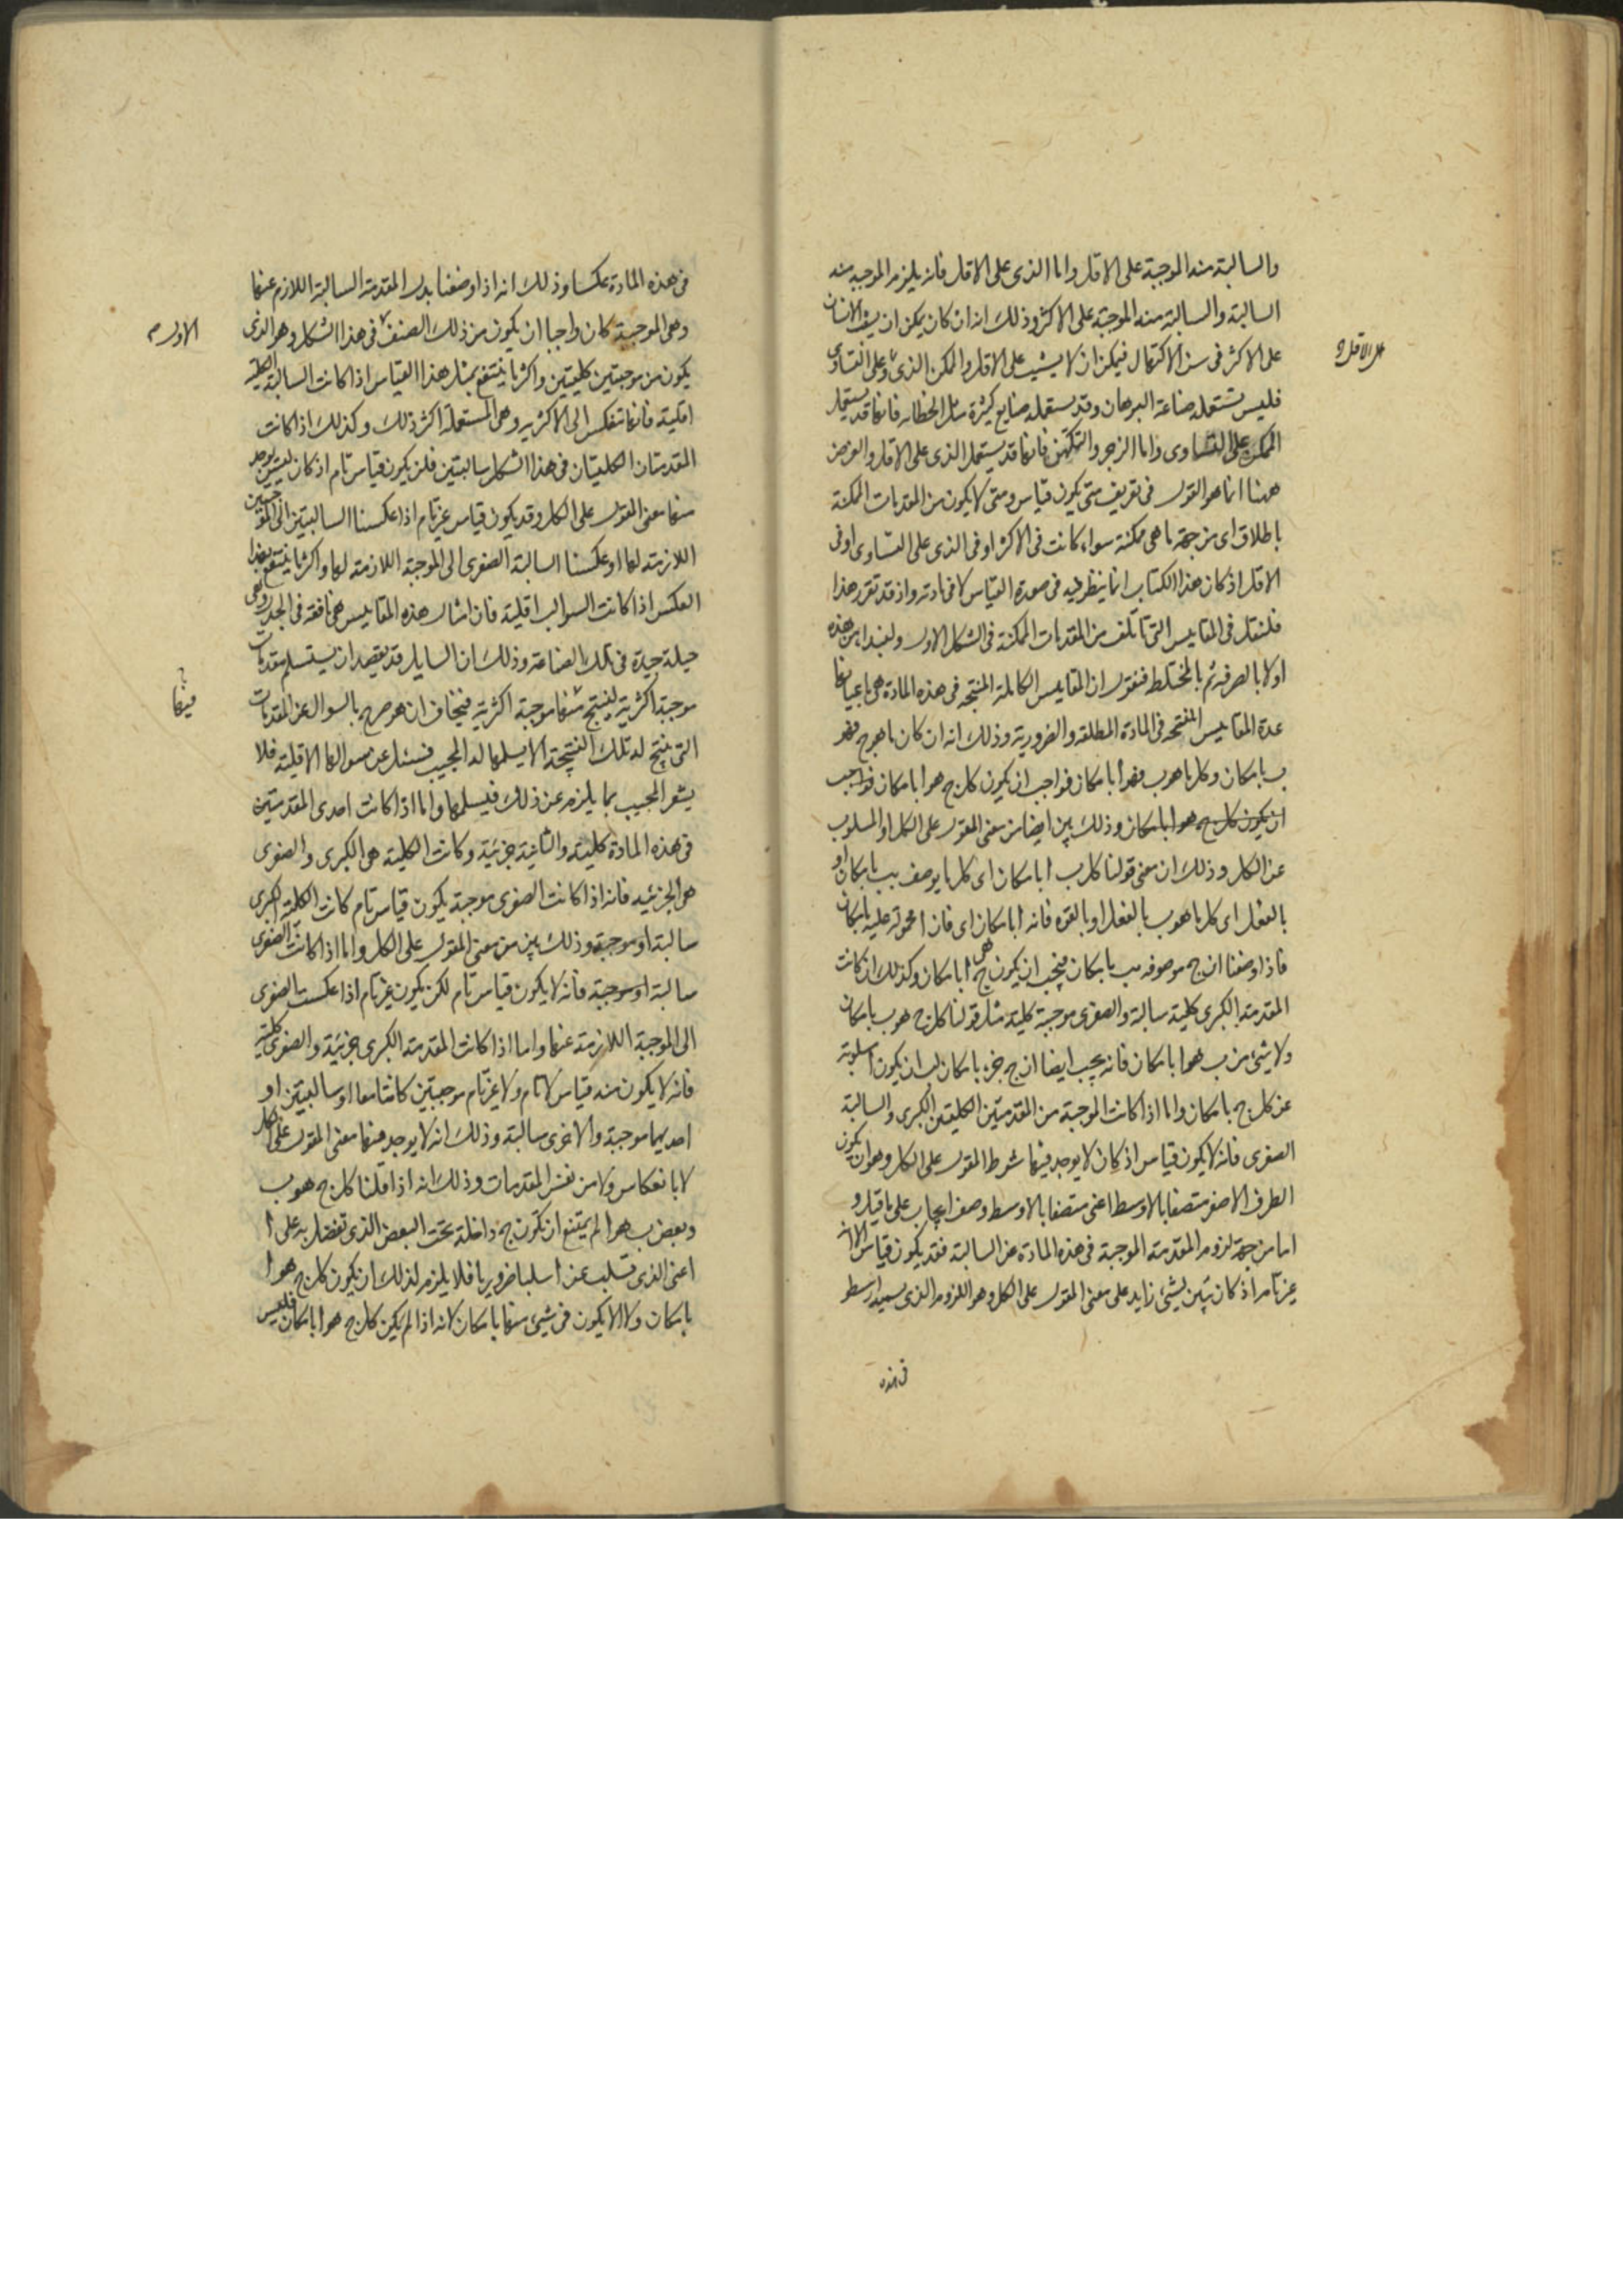 والسالبة منه الموجبة على الاقل واما الذى على الاقل فانه يلزم الموجبة منه
السالبة والسالبة منه الموجبة على الاكثر وذلك انه ان كان يمكن ان يشيب الانسان
على الاكثر فى سن الاكتهال فيمكن ان لا يشيب على الاقل والممكن الذى وعلى التساوى
على الاقل و
فليس تستعمله صناعة البرهان وقد يستعمله صنايع كثيرة مثل الخطابه فانها قد يستعمل
الممكن على التساوى واما الزجر والتكهن فانها قد يستعمل الذى على الاقل والغرض
ههنا انما هو القول فى تعريف متى يكون قياس ومتى لا يكون من المقدمات الممكنة
باطلاق اى من جهة ما هى ممكنة سواء كانت فى الاكثر او فى الذى على التساوى او فى
الاقل اذ كان هذا الكتاب انما ينظر فيه فى صورة القياس لا فى مادته واذ قد تقرر هذا
فلنقل فى المقاييس التى تأتلف من المقدمات الممكنة فى الشكل الاول ولنبدا من هذه
اولا بالصرفة ثم بالمختلطة فنقول ان المقاييس الكاملة المنتجة فى هذه المادة هى باعيانها
عدة المقاييس المنتجه فى المادة المطلقه والضرورية وذلك انه ان كان ما هو ج فهو
ب بامكان وكل ما هو ب فهو أ بامكان فواجب ان يكون كل ج هو أ بامكان فواجب
ان يكون كل ج هو أ بامكان وذلك بين ايضا من معنى المقول على الكل او المسلوب
عن الكل وذلك ان معنى قولنا كل ب أ بامكان اى كل ما يوصف بب بامكان او
بالفعل اى كل ما هو ب بالفعل او بالقوه فانه أ بامكان اى فان أ محمولة عليه بامكان
فاذا وضعنا ان ج موصوفه بب بامكان فيجب ان يكون ج هى أ بامكان وكذلك ان كانت
المقدمة الكبرى كلية سالبة والصغرى موجبة كلية مثل قولنا كل ج هو ب بامكان
ولا شىء من ب هو أ بامكان فانه يجب ايضا ان ج جزء بامكان لب ان يكون أ مسلوبة
عن كل ج بامكان واما اذا كانت الموجبة من المقدمتين الكليتين الكبرى والسالبة
الصغرى فانه لا يكون قياس اذ كان لا يوجد فيها شرط المقول على الكل وهو ان يكون
الطرف الاصغر متصفا بالاوسط اعنى متصفا بالاوسط وصف ايجاب على ما قيل و
اما من جهة لزوم المقدمة الموجبة فى هذه المادة عن السالبة فقد يكون قياس الا انه
غير تام اذ كان تبين بشىء زايد على معنى المقول على الكل وهو اللزوم الذى يسميه ارسطو
فى هذه
فى هذه المادة عكسا وذلك انه اذا وضعنا بدل المقدمة السالبة اللازم عنها
وهى الموجبة كان واجبا ان يكون من ذلك الصنف فى هذا الشكل وهو الذى
الاول م
يكون من موجبتين كليتين واكثر ما ينتفع بمثل هذا القياس اذا كانت السالبة الكلية
اقلية فانها تنعكس الى الاكثريه وهى المستعملة اكثر ذلك وكذلك اذا كانت
المقدمتان الكليتان فى هذا الشكل سالبتين فلن يكون قياس تام اذ كان ليس يوجد
منها معنى المقول على الكل وقد يكون قياس غير تام اذا عكسنا السالبتين الى الموجبتين
اللازمة لها او عكسنا السالبة الصغرى الى الموجبة اللازمة لها واكثر ما ينتفع بهذا
العكس اذا كانت السوالب اقلية فان امثال هذه المقاييس هى نافعة فى الجدل وهى
حيلة جيدة فى تلك الصناعة وذلك ان السايل قد يقصد ان يستسلم مقدمات
موجبة اكثرية لينتج منها موجبة اكثرية فيخاف ان هو صرح بالسوال عن المقدمات
فيها
التى ينتج له تلك النتيجة الا يسلمها له المجيب فيسئل عن سوالبها الاقلية فلا
يشعر المجيب بما يلزم عن ذلك فيسلمها واما اذا كانت احدى المقدمتين
فى هذه المادة كلية والثانية جزئية وكانت الكلية هى الكبرى والصغرى
هى الجزئيه فانه اذا كانت الصغرى موجبة يكون قياس تام كانت الكلية الكبرى
سالبة او موجبة وذلك بين من معنى المقول على الكل واما اذا كانت الصغرى
سالبة او موجبة فانه لا يكون قياس تام لكن يكون غير تام اذا عكست الصغرى
الى الموجبة اللازمة عنها واما اذا كانت المقدمة الكبرى جزئية والصغرى كلية
فانه لا يكون منه قياس لا تام ولا غير تام موجبتين كانتا معا او سالبتين او
احديهما موجبة والاخرى سالبة وذلك انه لا يوجد فيها معنى المقول على الكل
لا بانعكاس ولا من نفس المقدمات وذلك انه اذا قلنا كل ج هو ب
وبعض ب هو أ لم يمتنع ان يكون ج داخلة تحت البعض الذى تفضل به على أ
اعنى الذى تسلب عن أ سلبا ضروريا فلا يلزم لذلك ان يكون كل ج هو أ
بامكان ولا الا يكون فى شىء منها بامكان لانه اذا لم يكن كل ج هو أ بامكان فليس